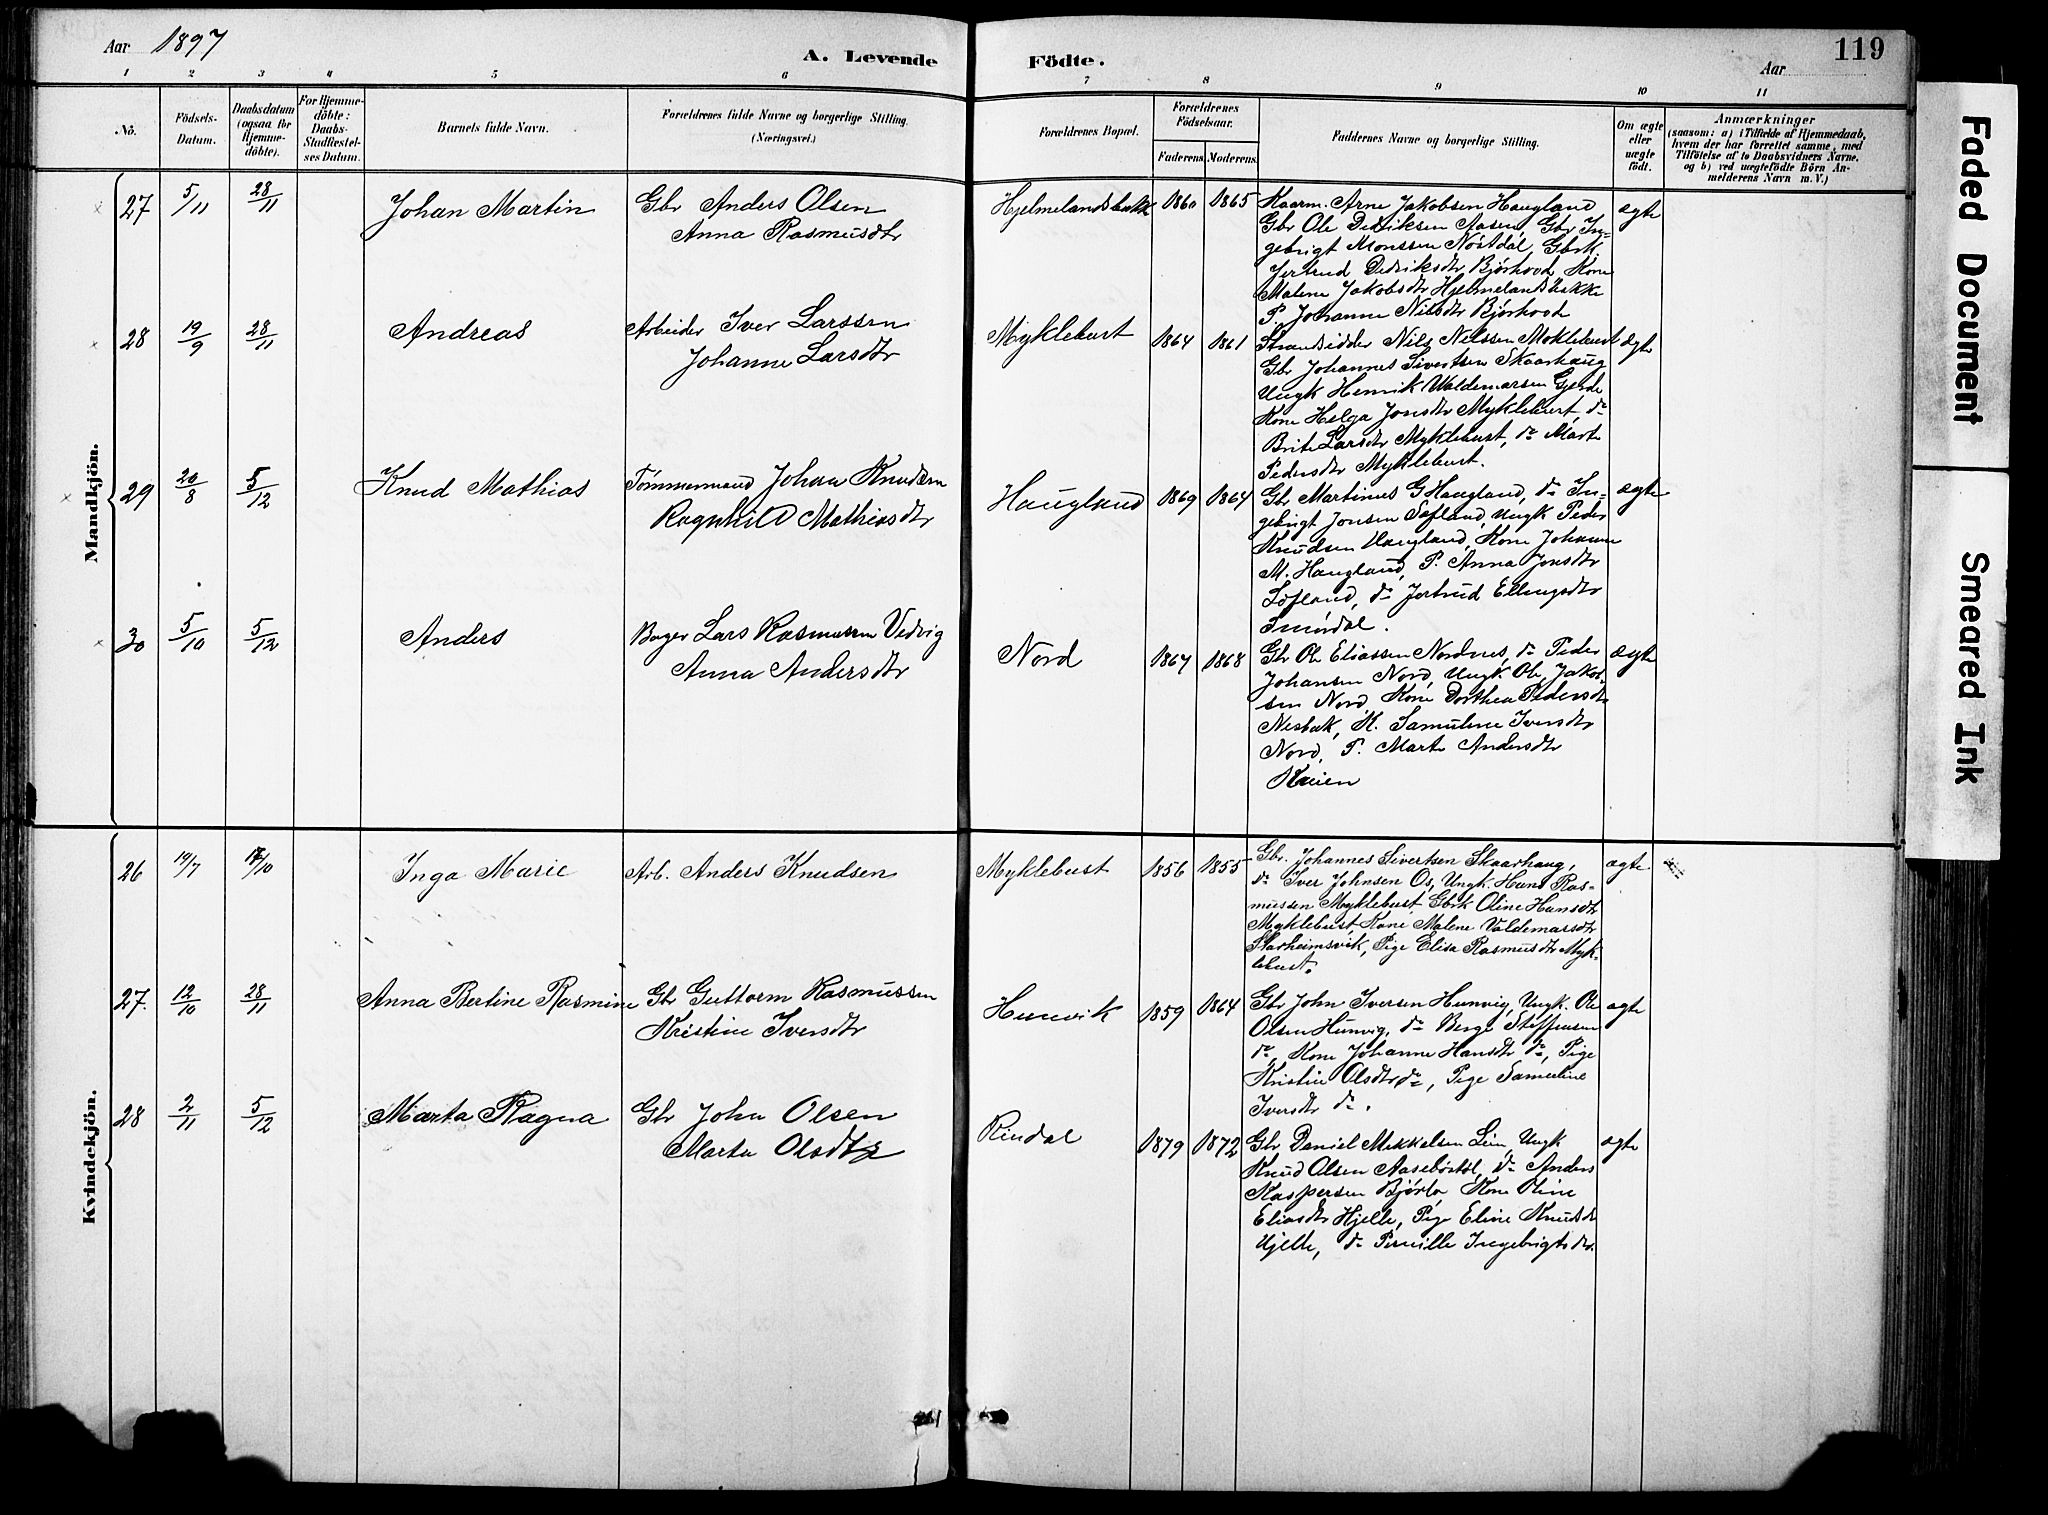 Aar 1897
A. Levende Födte.
Aar
119
1 2 3 4 5 6 7 8 9 10 11
No.
Födsels-Datum.
Daabsdatum (ogsaa for Hjemme-döbte).
For Hjemme-döbte: Daabs-Stadfæstel-ses Datum.
Barnets fulde Navn.
Forældrenes fulde Navne og borgerlige Stilling. (Næringsvei.)
Forældrenes Bopæl.
Forældrenes Födselsaar.
Faderens. Moderens.
Faddernes Navne og borgerlige Stilling.
Om ægte eller uægte födt.
Anmærkninger
(saasom: a) i Tilfælde af Hjemmedaab,
hvem der har forrettet samme, med
Tilföielse af to Daabsvidners Navne,
og b) ved uægtefödte Börn An-
melderens Navn m. V.)
Mandkjön.
27 5/11 28/11 Johan Martin
Gbr Anders Olsen
Anna Rasmusdtr
Hjelmelandsbakk 1860 1865
Kaarm. Arne Jakobsen Haugland
Gbr Ole Dedriksen Aasen, Gbr In-
gebrigt Monssen Nöstdal, Gbrk.
Jertrud Dedriksdtr Bjørhovd, Kone
Malene Jakobsdtr Hjelmelandsbakke
P. Johanne Nilsdtr Bjørhovd
ægte
28 19/9 28/11 Andreas
Arbeider Iver Larssen
Johanne Larsdtr
Myklebust 1864 1861
Strandsidder Nils Nilssen Myklebust
Gbr Johannes Sivertsen Skaarhaug
Ungk Henrik Waldemarsen Gjerde
Kone Helga Jonsdtr Myklebust, do
Brite Larsdtr Myklebust, do Marte
Pedersdtr Myklebust.
ægte
29 20/8 5/12 Knud Mathias
Tömmermand Johan Knudsen
Ragnhild Mathiasdtr
Haugland 1869 1864
Gbr Martinus G Haugland, do In-
gebrigt Jonsen Lofland, Ungk Peder
Knudsen Haugland, Kone Johanne
M. Haugland, P. Anna Jonsdtr
Lofland, do Jertrud Ellingsdtr
Smördal.
ægte
30 5/10 5/12 Anders
Bager Lars Rasmussen Vedvig
Anna Andersdtr
Nord 1867 1868
Gbr Ole Eliassen Nordnes, do Peder
Johansen Nord, Ungk Ole Jakob-
sen Nord, Kone Dorthea Pedersdtr
Nesbak, K. Samuline Iversdtr
Nord, P. Marte Andersdtr
Kreien
ægte
Kvindekjön.
26 19/7 17/10 Inga Marie
Arb. Anders Knudsen
Myklebust 1856 1855
Gbr. Johannes Sivertsen Skaarhaug,
do Iver Johnsen Os, Ungk. Hans Ras-
mussen Myklebust, Gbrk Oline Hansdtr
Myklebust, Kone Malene Valdemarsdtr
Starheimsvik, Pige Elisa Rasmusdtr Myk-
lebust.
ægte
27. 12/10 28/11 Anna Bertine Rasmine
Gbr Guttorm Rasmussen
Kristine Iversdtr
Hunvik 1859 1864
Gbr John Iversen Hunvig, Ungk. Ole
Olsen Hunvig, do Berge Steffensen
do, Kone Johanne Hansdtr do, Pige
Kristine Olsdtr do, Pige Samuline
Iversdtr do.
ægte
28 2/11 5/12 Marta Ragna
Gbr John Olsen
Marta Olsdtr
Rindal 1879 1872
Gbr Daniel Mikkelsen Lein, Ungk
Knud Olsen Aasebøstøl, do Anders
Kaspersen Bjørlo, Kone Oline
Eliasdtr Hjelle, Pige Eline Knudsdtr
Hjelle, do Pernille Ingebrigtsdtr.
ægte
Faded Document
Smeared Ink